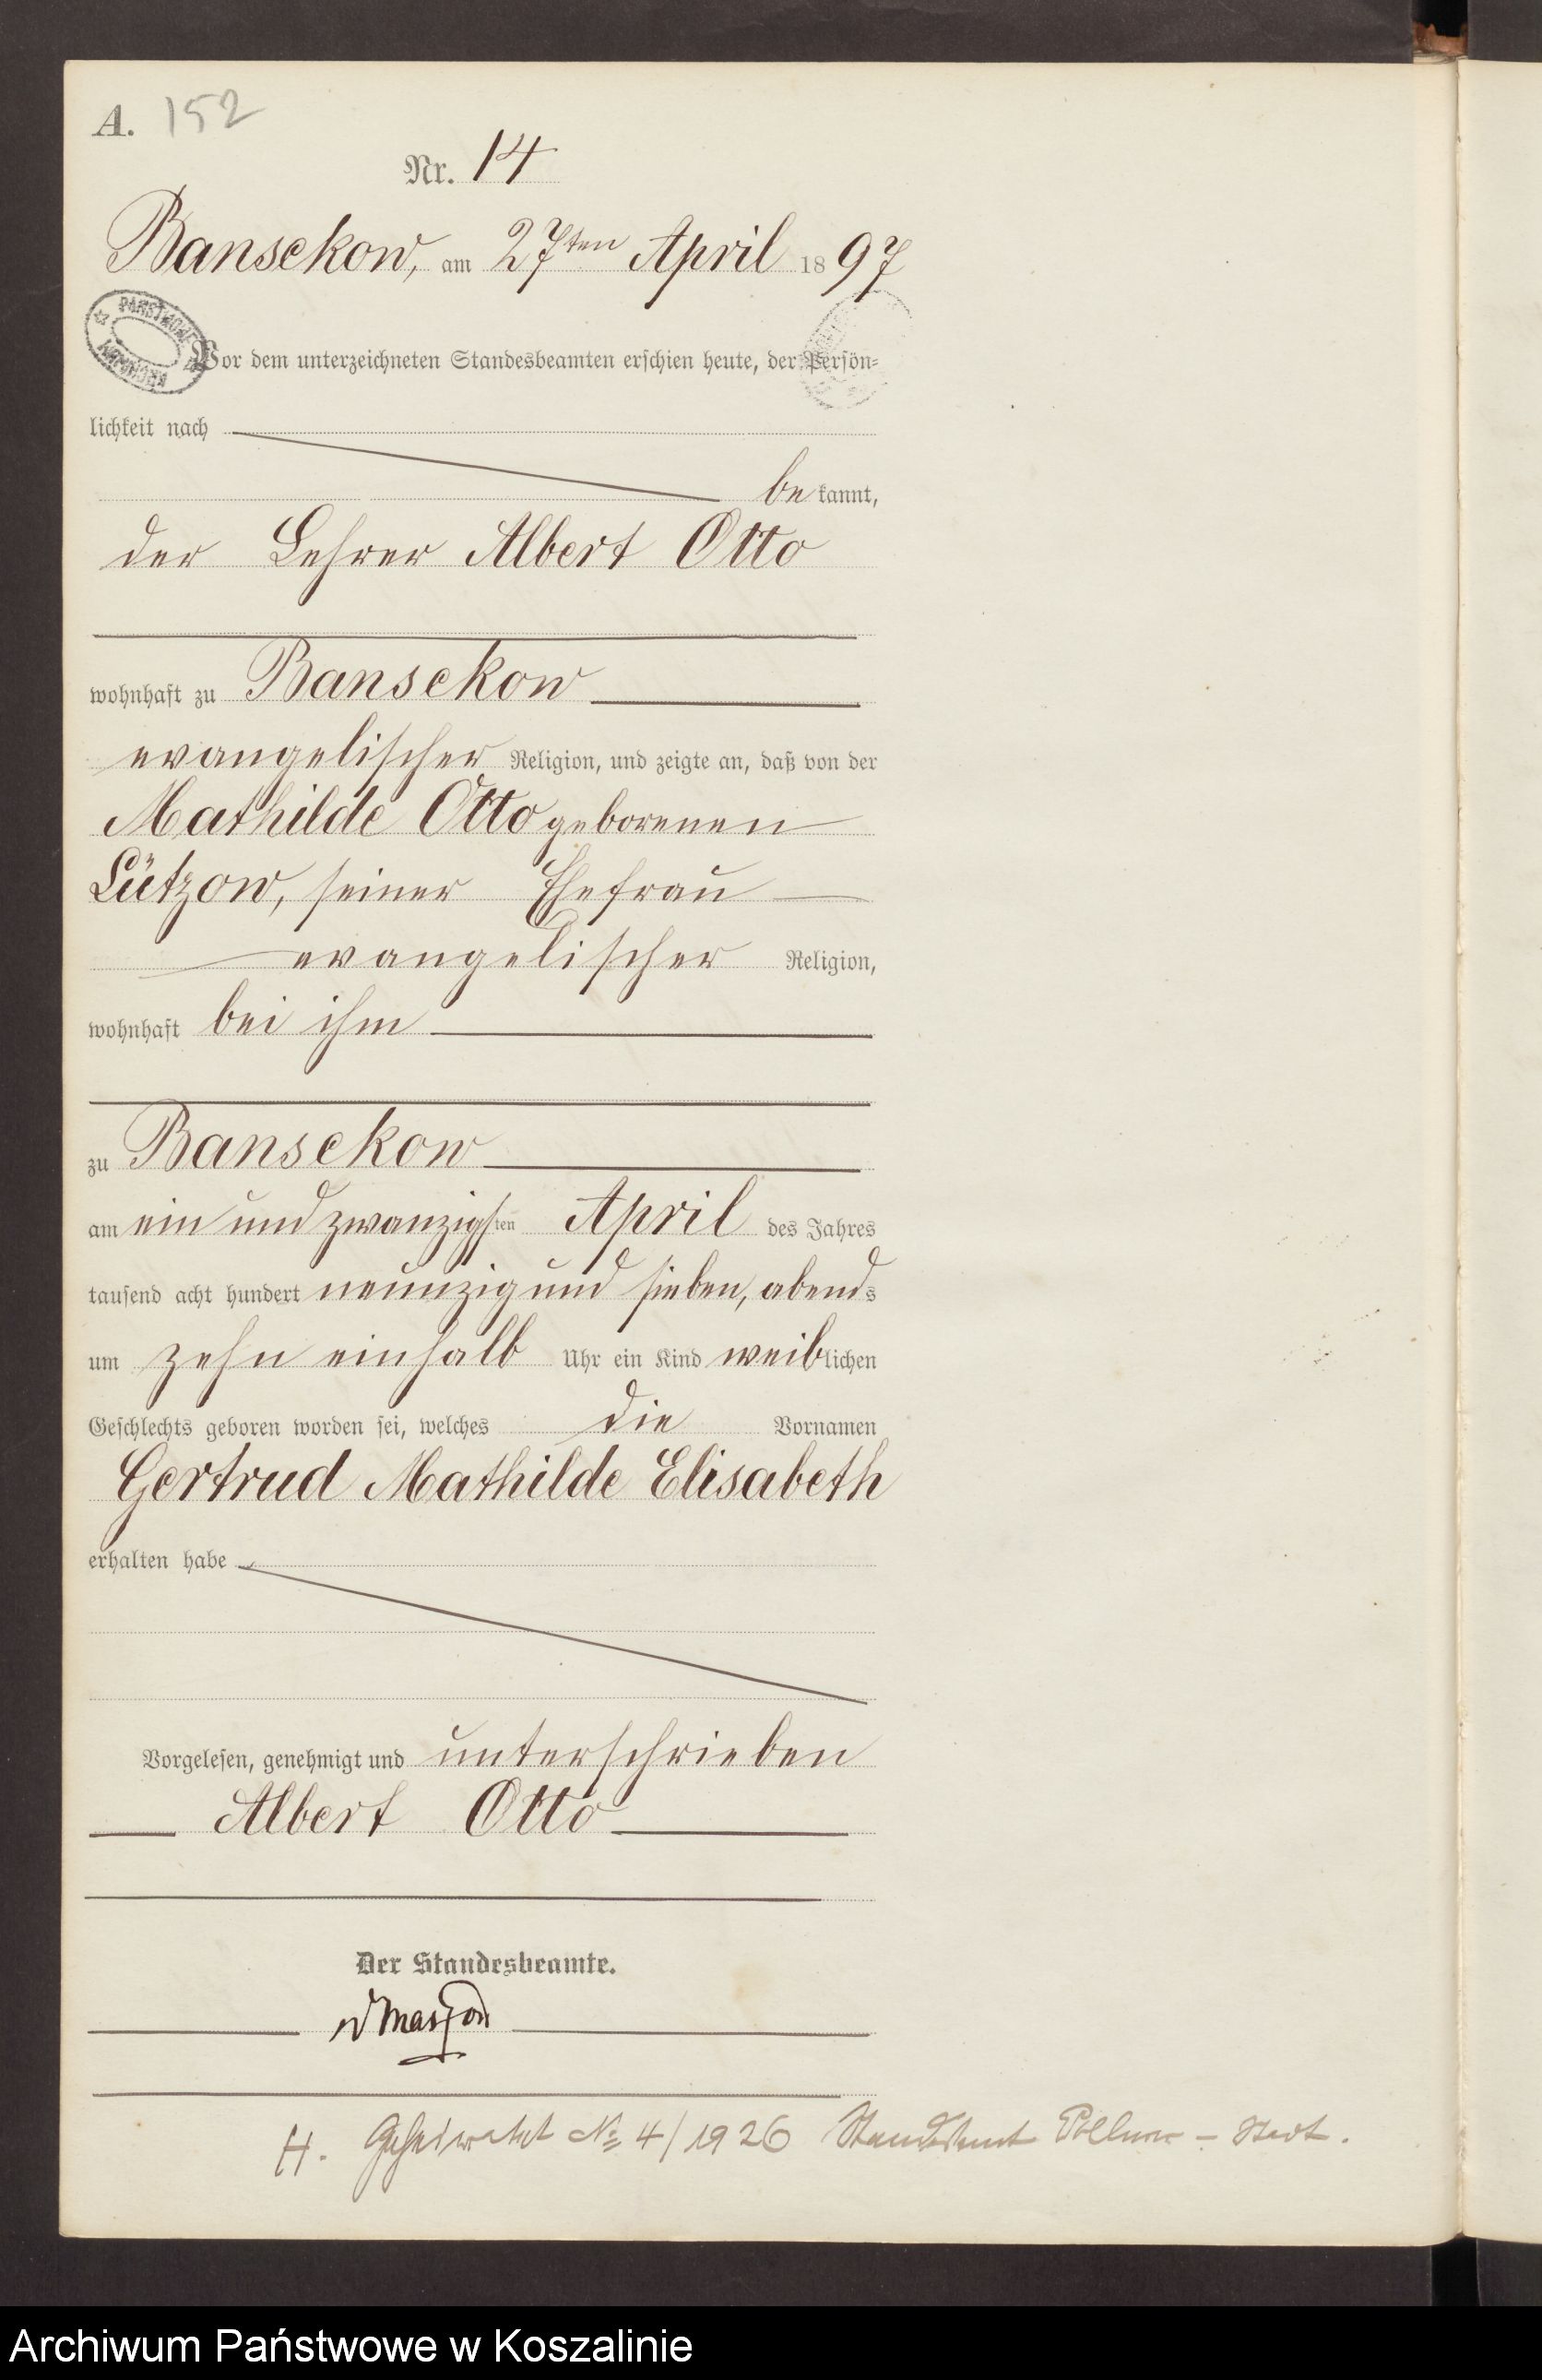 A. 152
Nr. 14
Bansekow, am 27ten April 1897
PAŃSTWOWE ARCHIWUM
Vor dem unterzeichneten Standesbeamten erschien heute, der Persön-
lichkeit nach
bekannt,
der Lehrer Albert Otto
wohnhaft zu Bansekow
evangelischer Religion, und zeigte an, daß von der
Mathilde Otto geborenen
Lützow, seiner Ehefrau
evangelischer Religion,
wohnhaft bei ihm
zu Bansekow
am ein und zwanzigsten April des Jahres
tausend acht hundert neunzig und sieben, abends
um zehn einhalb Uhr ein Kind weiblichen
Geschlechts geboren worden sei, welches die Vornamen
Gertrud Mathilde Elisabeth
erhalten habe
Vorgelesen, genehmigt und unterschrieben
Albert Otto
Der Standesbeamte.
H. Geheiratet № 4/1926 Standesamt
Archiwum Państwowe w Koszalinie